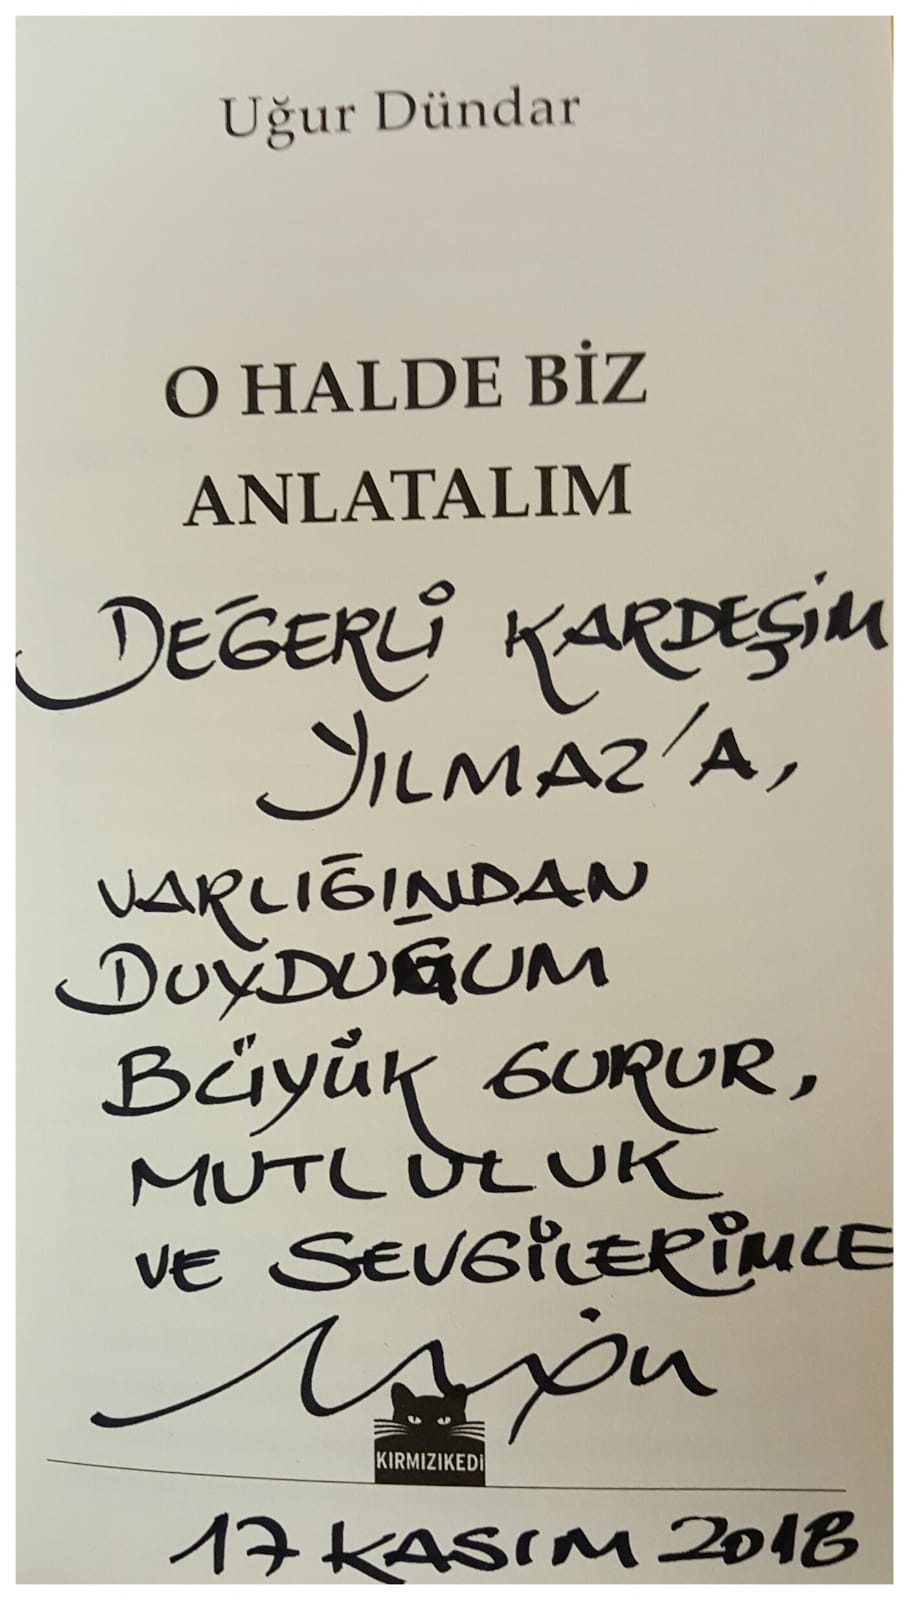 Uğur Dündar
O HALDE BİZ
ANLATALIM
DEĞERLİ KARDEŞİM
YILMAZ'A,
VARLIĞINDAN
DUYDUĞUM
BÜYÜK GURUR,
MUTLULUK
VE SEVGİLERİMLE
KIRMIZIKEDİ
17 KASIM 2018